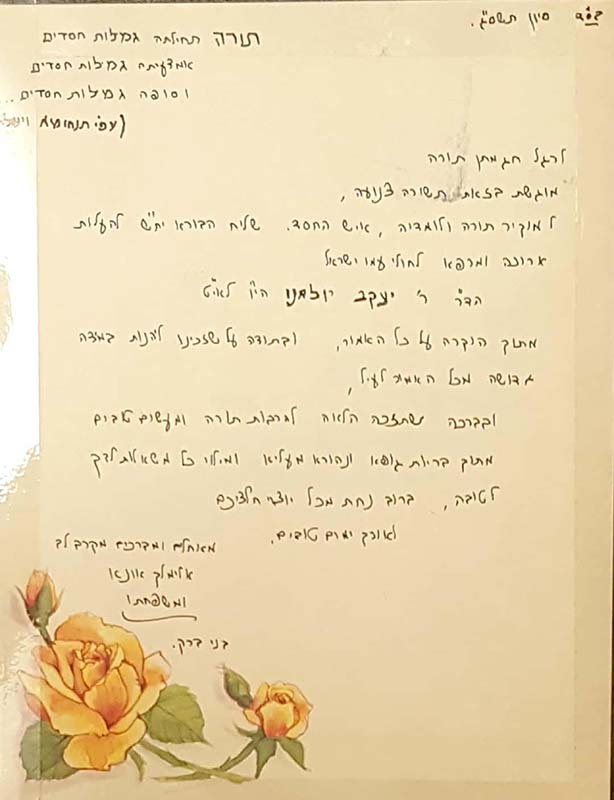 סיון תשס"ג.
תורה תחילתה גמילות חסדים
אמצעיתה גמילות חסדים
וסופה גמילות חסדים...
(עפ"י תנחומא
לרגל חג מתן תורה
מוגשת בזאת תשורה צנועה,
למוקיר תורה ולומדיה, איש החסד. שליח הבורא ית"ש להעלות
ארוכה ומרפא לחולי עמו ישראל
הד"ר ר' יעקב הי"ו לאי"ט
מתוך הוקרה על כל האמור, ובתודה על שזכינו ליהנות במדה
גדושה מכל האמור לעיל,
ובברכה שתזכה הלאה להרבות תורה ומעשים טובים
מתוך בריות גופא ונהורא מעליא ומילוי כל משאלות לבך
לטובה, ברוב נחת מכל יוצאי חלציכם
לאורך ימים טובים.
מאחלים ומברכים מקרב לב
אלימלך אונא
ומשפחתו
בני ברק.